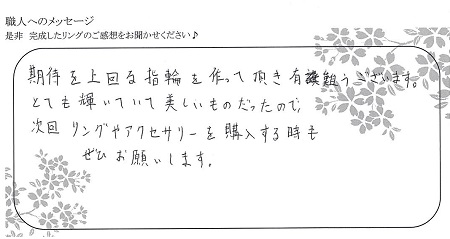 職人へのメッセージ
是非 完成したリングのご感想をお聞かせください♪
期待を上回る指輪を作って頂き有難うございます。
とても輝いていて美しいものだったので、
次回 リングやアクセサリーを購入する時も
ぜひお願いします。